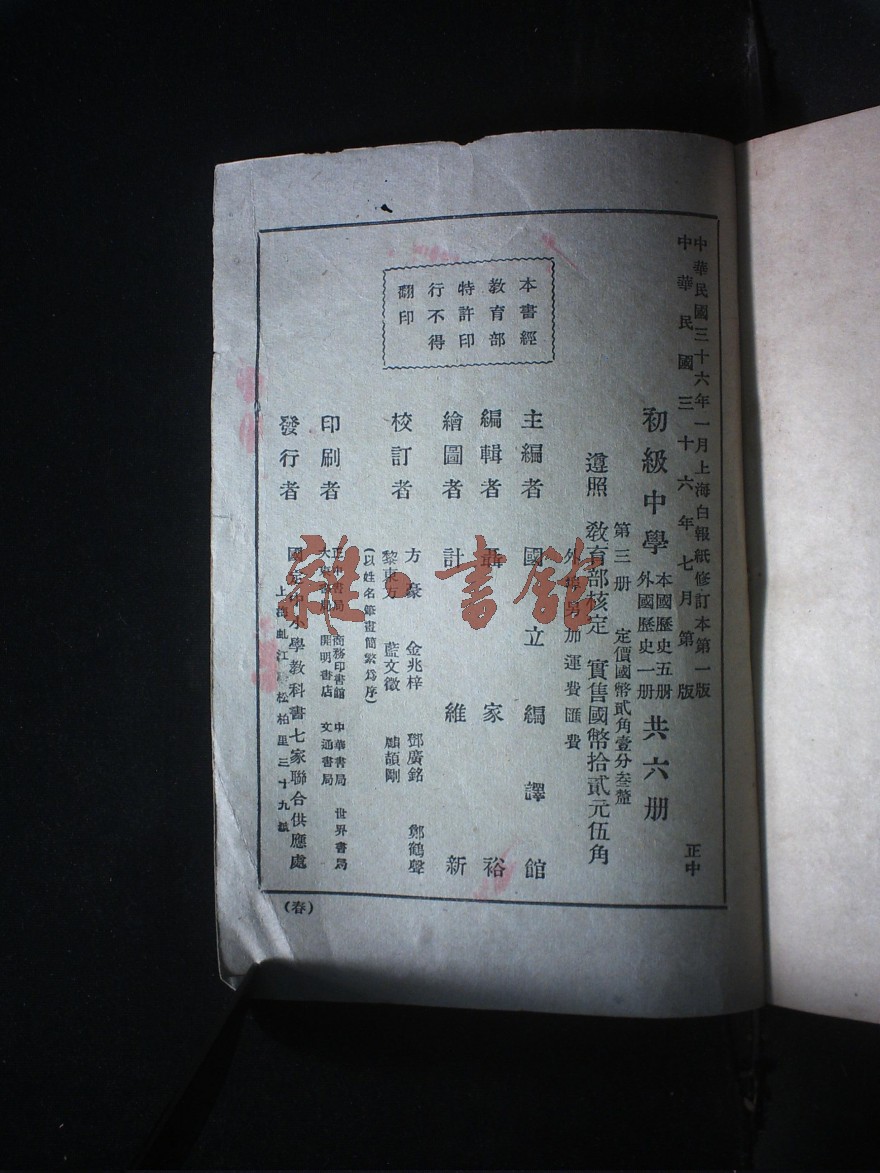 中華民國三十六年一月上海白報紙修訂本第一版
中華民國三十六年七月第 版
初級中學 本國歷史五册 外國歷史一册 共六册
第三册 定價國幣貳角壹分叁釐
遵照教育部核定 實售國幣拾貳元伍角
外埠另加運費匯費
本書經
教育部
特許印
行不得
翻印
主編者 國立編譯館
編輯者 聶家裕
繪圖者 計維新
校訂者 方豪 金兆梓 鄧廣銘 鄭鶴聲
黎東方 藍文徵 顧頡剛
(以姓名筆畫簡繁爲序)
印刷者 正中書局 商務印書館 中華書局 世界書局
大東書局 開明書店 文通書局
發行者 國定中小學教科書七家聯合供應處
上海虬江 松柏里三十九號
正中
(春)
雜·書館